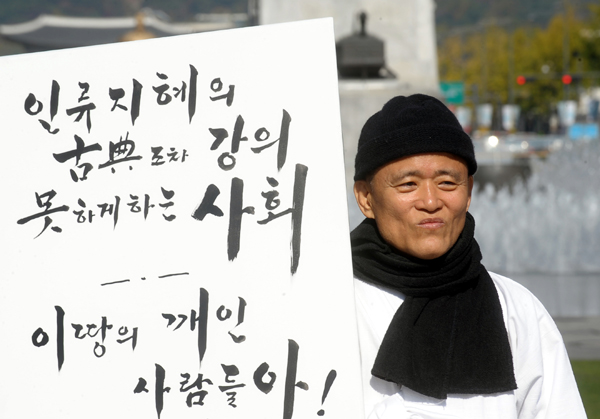 인류 지혜의
古典 조차 강의
못하게하는 사회
이땅의 깨인
사람들아!